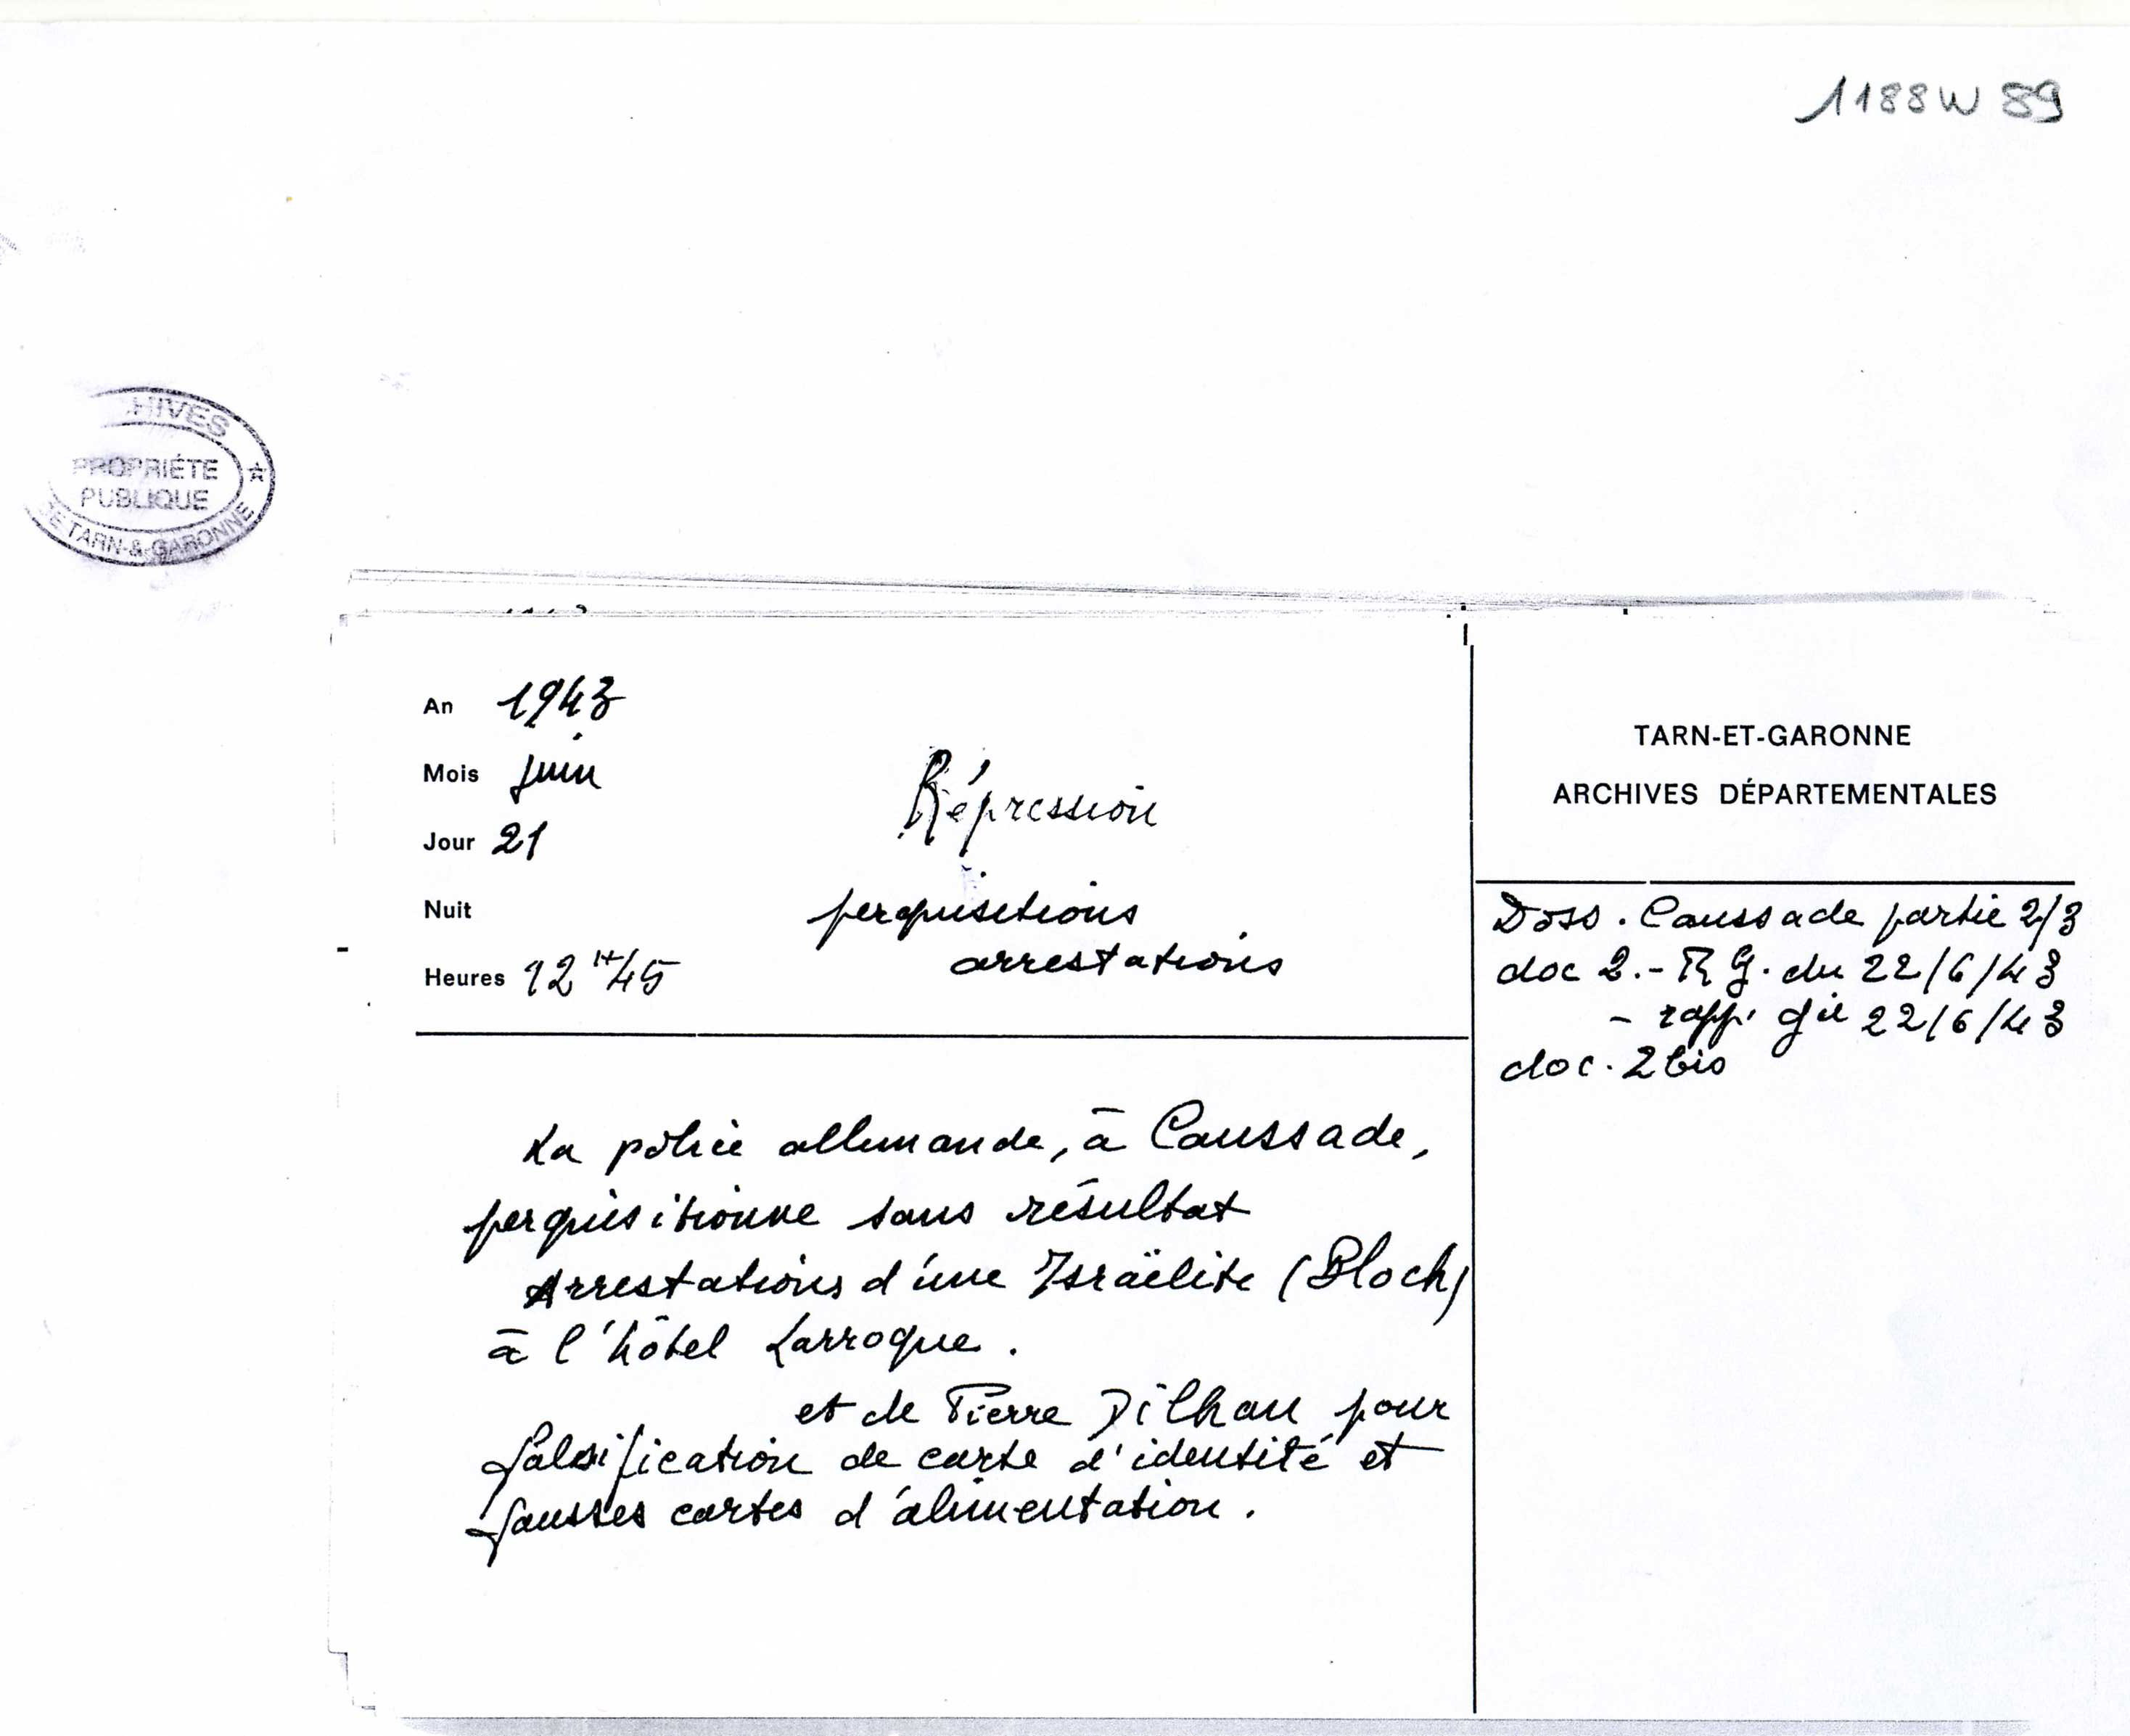 1188W 89
HIVES
PROPRIÉTE
PUBLIQUE
DE TARN-&-GARONNE
An 1943
Mois Juin
Jour 21
Nuit
Heures 12 H 45
Répression
perquisitions
arrestations
TARN-ET-GARONNE
ARCHIVES DÉPARTEMENTALES
Doss. Caussade partie 2/3
doc 2.- R G. du 22/6/43
- rapp. gie 22/6/43
doc. 2 bis
La police allemande, à Caussade,
perquisitionne sans résultat
Arrestations d'une Israëlite (Bloch)
à l'hôtel Larroque.
et de Pierre Dilhan pour
falsification de carte d'identité et
fausses cartes d'alimentation.